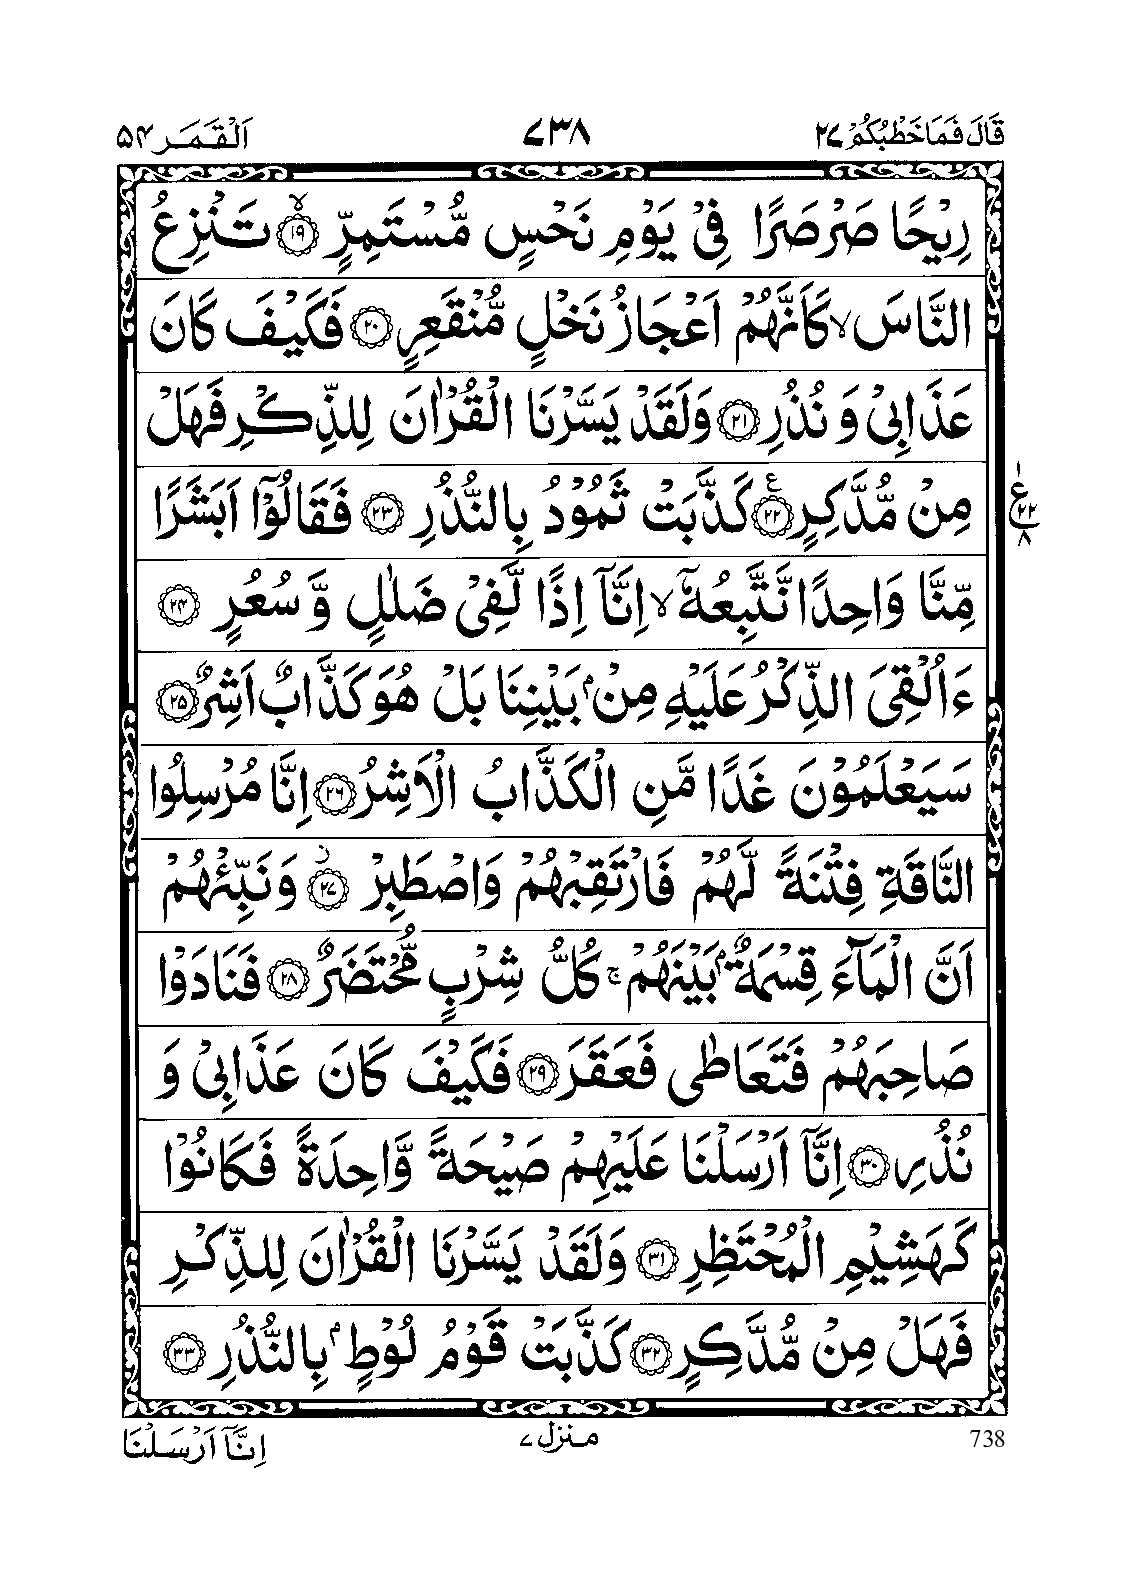 قَالَ فَمَا خَطْبُكُمْ ۲۷ ۷۳۸ اَلْقَمَر ۵۴
رِيْحًا صَرْصَرًا فِيْ يَوْمِ نَحْسٍ مُّسْتَمِرٍّ ﴿۱۹﴾ۙ تَنْزِعُ
النَّاسَ ۙ كَاَنَّهُمْ اَعْجَازُ نَخْلٍ مُّنْقَعِرٍ ﴿۲۰﴾ فَكَيْفَ كَانَ
عَذَابِيْ وَ نُذُرِ ﴿۲۱﴾ وَلَقَدْ يَسَّرْنَا الْقُرْاٰنَ لِلذِّكْرِ فَهَلْ
مِنْ مُّدَّكِرٍ ﴿۲۲﴾ ع كَذَّبَتْ ثَمُوْدُ بِالنُّذُرِ ﴿۲۳﴾ فَقَالُوْۤا اَبَشَرًا
۱ ع ۲۲ ۸
مِّنَّا وَاحِدًا نَّتَّبِعُهٗۤ ۙ اِنَّاۤ اِذًا لَّفِيْ ضَلٰلٍ وَّ سُعُرٍ ﴿۲۴﴾
ءَاُلْقِيَ الذِّكْرُ عَلَيْهِ مِنْۢ بَيْنِنَا بَلْ هُوَ كَذَّابٌ اَشِرٌ ﴿۲۵﴾
سَيَعْلَمُوْنَ غَدًا مَّنِ الْكَذَّابُ الْاَشِرُ ﴿۲۶﴾ اِنَّا مُرْسِلُوا
النَّاقَةِ فِتْنَةً لَّهُمْ فَارْتَقِبْهُمْ وَاصْطَبِرْ ﴿۲۷﴾ ز وَنَبِّئْهُمْ
اَنَّ الْمَآءَ قِسْمَةٌۢ بَيْنَهُمْ ۚ كُلُّ شِرْبٍ مُّحْتَضَرٌ ﴿۲۸﴾ فَنَادَوْا
صَاحِبَهُمْ فَتَعَاطٰى فَعَقَرَ ﴿۲۹﴾ فَكَيْفَ كَانَ عَذَابِيْ وَ
نُذُرِ ﴿۳۰﴾ اِنَّاۤ اَرْسَلْنَا عَلَيْهِمْ صَيْحَةً وَّاحِدَةً فَكَانُوْا
كَهَشِيْمِ الْمُحْتَظِرِ ﴿۳۱﴾ وَلَقَدْ يَسَّرْنَا الْقُرْاٰنَ لِلذِّكْرِ
فَهَلْ مِنْ مُّدَّكِرٍ ﴿۳۲﴾ كَذَّبَتْ قَوْمُ لُوْطٍۭ بِالنُّذُرِ ﴿۳۳﴾
738 منزل ۷ اِنَّاۤ اَرْسَلْنَا